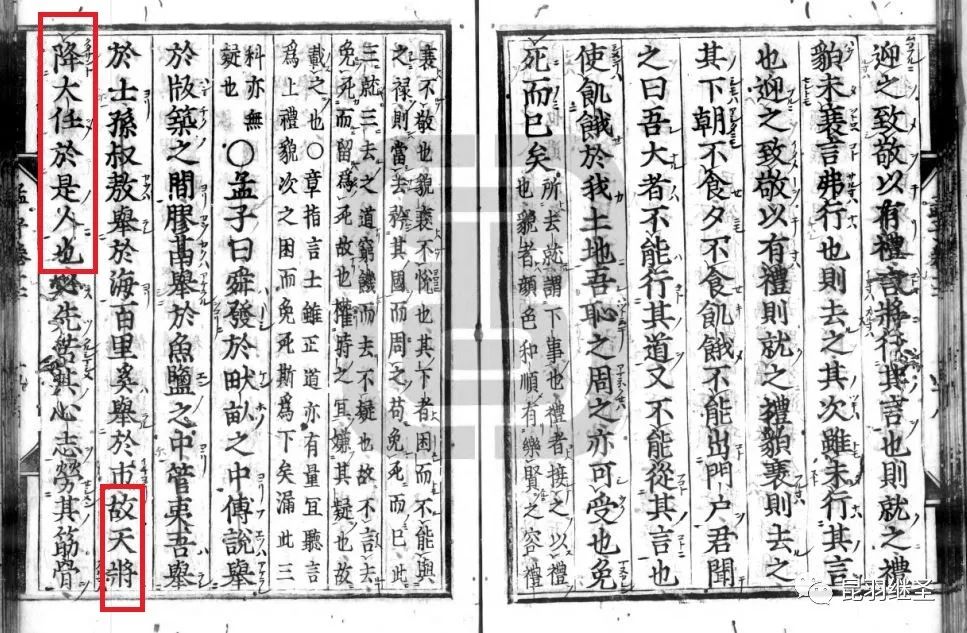 迎之致敬以有禮言將行其言也則就之禮
貌未衰言弗行也則去之其次雖未行其言
也迎之致敬以有禮則就之禮貌衰則去之
其下朝不食夕不食飢餓不能出門户君聞
之曰吾大者不能行其道又不能從其言也
使飢餓於我土地吾恥之周之亦可受也免
死而已矣
所去就謂下事也禮者接之以禮
也貌者顔色和順有樂賢之容禮
衰不敬也貌衰不悅也其下者困而不能與
之禄則當去矜其國而周之苟免死而已此
三就三去之道窮餓而去不疑也故不言去
免死而留爲死故也權時之冝嫌其疑也故
載之也〇章指言士雖正道亦有量冝聽言
爲上禮貌次之困而免死斯爲下矣漏此三
科亦無
疑也
〇孟子曰舜發於畎畝之中傅說舉
於版築之間膠鬲舉於魚鹽之中管夷吾舉
於士孫叔敖舉於海百里奚舉於市故天將
降大任於是人也必先苦其心志勞其筋骨
昆羽继圣